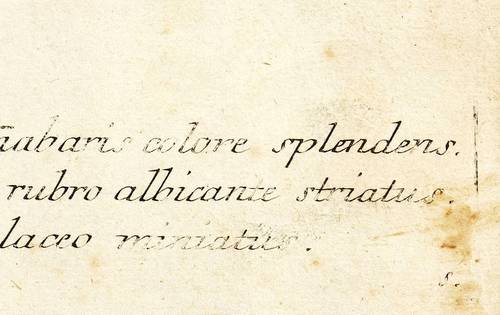 n̄abaris colore splendens.
rubro albicante striatus.
laceo miniatus.
s.